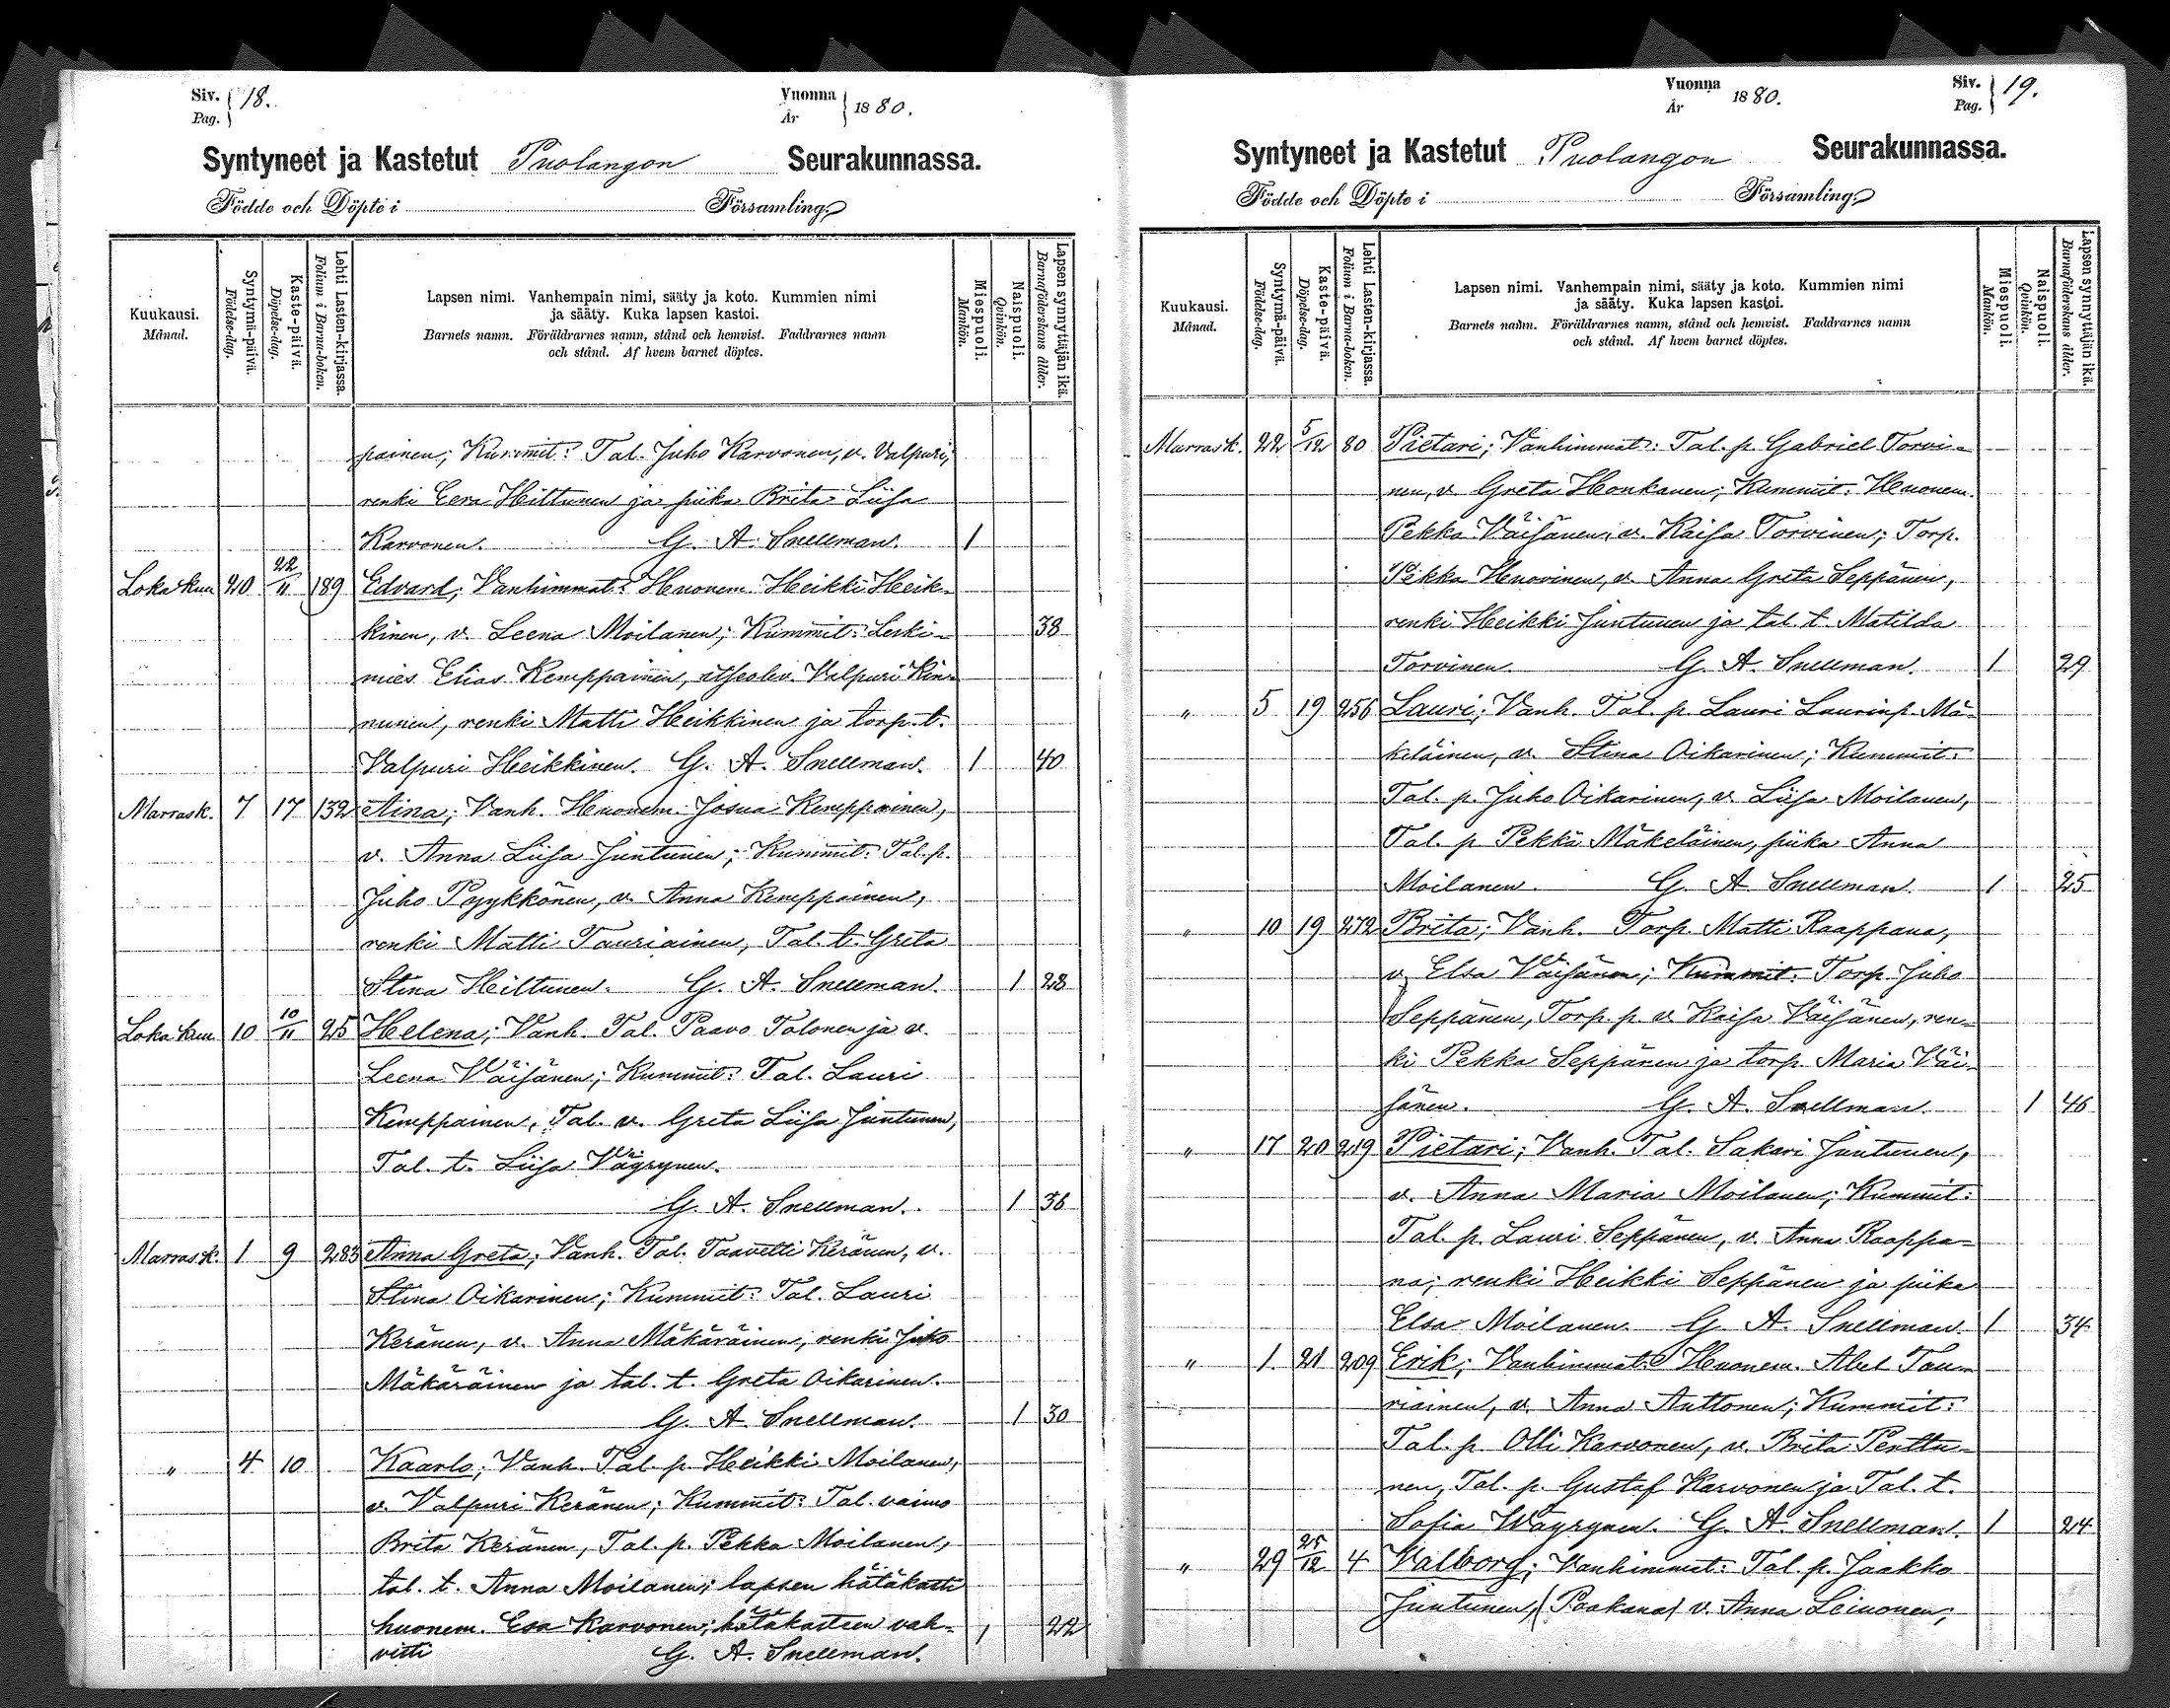 Siv. 18.
Pag.
Vuonna 1880.
År
Syntyneet ja Kastetut Puolangon Seurakunnassa.
Födde och Döpte i Församling.
Kuukausi.
Månad.
Syntymä-päivä.
Födelse-dag.
Kaste-päivä.
Döpelse-dag.
Lehti Lasten-kirjassa.
Folium i Barna-boken.
Lapsen nimi. Vanhempain nimi, sääty ja koto. Kummien nimi
ja sääty. Kuka lapsen kastoi.
Barnets namn. Föräldrarnes namn, stånd och hemvist. Faddrarnes namn
och stånd. Af hvem barnet döptes.
Miespuoli.
Mankön.
Naispuoli.
Qvinkön.
Lapsen synnyttäjän ikä.
Barnaföderskans ålder.
painen; Kummit: Tal. Juho Karvonen, v. Valpuri,
renki Eera Hiltunen ja piika Brita Liisa
Karvonen. G. A. Snellman. 1
Lokakuu 20 22/11 189 Edvard; Vanhimmat: Huonem. Heikki Heik-
kinen, v. Leena Moilanen; Kummit: Leski- 38
mies Elias Kemppainen, itseolev. Valpuri Kin-
nunen, renki Matti Heikkinen ja torp. t.
Valpuri Heikkinen. G. A. Snellman. 1 40
Marrask. 7 17 132 Aina; Vanh. Huonem. Josua Kemppainen,
v. Anna Liisa Juntunen; Kummit: Tal. p.
Juho Pyykkönen, v. Anna Kemppainen,
renki Matti Tauriainen, Tal. t. Greta
Stina Heiltunen. G. A. Snellman. 1 28
Lokakuu 10 10/11 25 Helena; Vanh. Tal. Paavo Tolonen ja v.
Leena Väisänen; Kummit: Tal. Lauri
Kemppainen, Tal. v. Greta Liisa Juntunen,
Tal. t. Liisa Väyrynen.
G. A. Snellman. 1 36
Marrask. 1 9 283 Anna Greta; Vanh. Tal. Taavetti Keränen, v.
Stina Oikarinen; Kummit: Tal. Lauri
Keränen, v. Anna Mäkäräinen, renki Juho
Mäkäräinen ja tal. t. Greta Oikarinen.
G. A. Snellman. 1 30
" 4 10 Kaarlo; Vanh. Tal. p. Heikki Moilanen,
v. Valpuri Keränen; Kummit: Tal. vaimo
Brita Keränen, Tal. p. Pekka Moilanen,
tal. t. Anna Moilanen; lapsen hätäkasti
huonem. Esa Karvonen; hätäkasteen vah- 1 22
visti G. A. Snellman.
Vuonna 1880.
År
Siv. 19.
Pag.
Syntyneet ja Kastetut Puolangon Seurakunnassa.
Födde och Döpte i Församling.
Kuukausi.
Månad.
Syntymä-päivä.
Födelse-dag.
Kaste-päivä.
Döpelse-dag.
Lehti Lasten-kirjassa.
Folium i Barna-boken.
Lapsen nimi. Vanhempain nimi, sääty ja koto. Kummien nimi
ja sääty. Kuka lapsen kastoi.
Barnets namn. Föräldrarnes namn, stånd och hemvist. Faddrarnes namn
och stånd. Af hvem barnet döptes.
Miespuoli.
Mankön.
Naispuoli.
Qvinkön.
Lapsen synnyttäjän ikä.
Barnaföderskans ålder.
Marrask. 22 5/12 80 Pietari; Vanhimmat: Tal. p. Gabriel Torvi-
nen, v. Greta Honkanen; Kummit: Huonem.
Pekka Väisänen, v. Kaisa Torvinen; Torp.
Pekka Huovinen, v. Anna Greta Seppänen,
renki Heikki Juntunen ja tal. t. Matilda
Torvinen. G. A. Snellman. 1 29
" 5 19 256 Lauri; Vanh. Tal. p. Lauri Laurinp. Mä-
keläinen, v. Stina Oikarinen; Kummit:
Tal. p. Juho Oikarinen, v. Liisa Moilanen,
Tal. p Pekka Mäkeläinen, piika Anna
Moilanen. G. A. Snellman. 1 25
" 10 19 272 Brita; Vanh. Torp. Matti Raappana,
v. Elsa Väisänen; Kummit: Torp. Juho
Seppänen, Torp. p. v. Kaisa Väisänen, ren-
ki Pekka Seppänen ja torp. Maria Väi-
sänen. G. A. Snellman. 1 46
" 17 20 219 Pietari; Vanh. Tal. Sakari Juntunen,
v. Anna Maria Moilanen; Kummit:
Tal. p. Lauri Seppänen, v. Anna Raappa-
na; renki Heikki Seppänen ja piika
Elsa Moilanen. G. A. Snellman. 1 34
" 1 21 209 Erik; Vanhimmat: Huonem. Abel Tau-
riainen, v. Anna Anttonen; Kummit:
Tal. p. Olli Karvonen, v. Brita Penttu-
nen, Tal. p. Gustaf Karvonen ja Tal. t.
Sofia Wäyrynen. G. A. Snellman. 1 24
" 29 25/12 4 Valborg; Vanhimmat: Tal. p. Jaakko
Juntunen, (Paakana) v. Anna Leinonen;